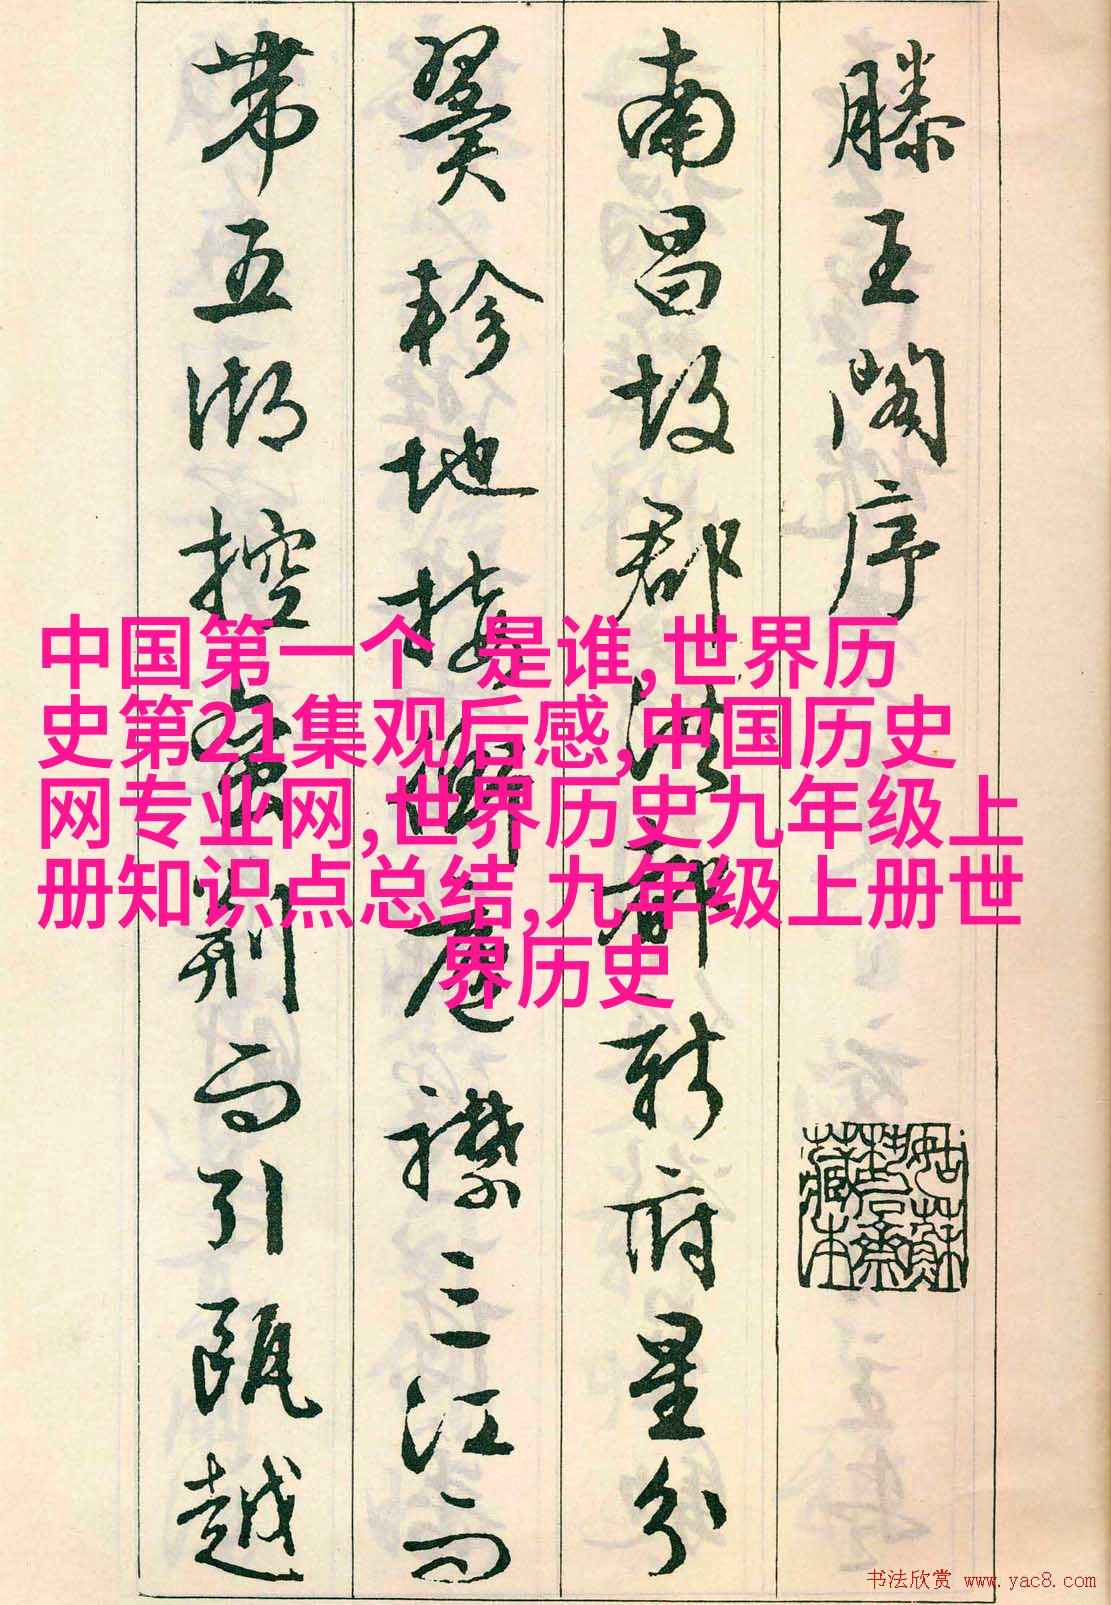 滕王閣序
南昌故郡洪都新府星分
翼軫地接衡廬襟三江而
帶五湖控蠻荆而引甌越
中国第一个 是谁,世界历
史第21集观后感,中国历史
网专业网,世界历史九年级上
册知识点总结,九年级上册世
界历史
书法欣赏 www.yac8.com